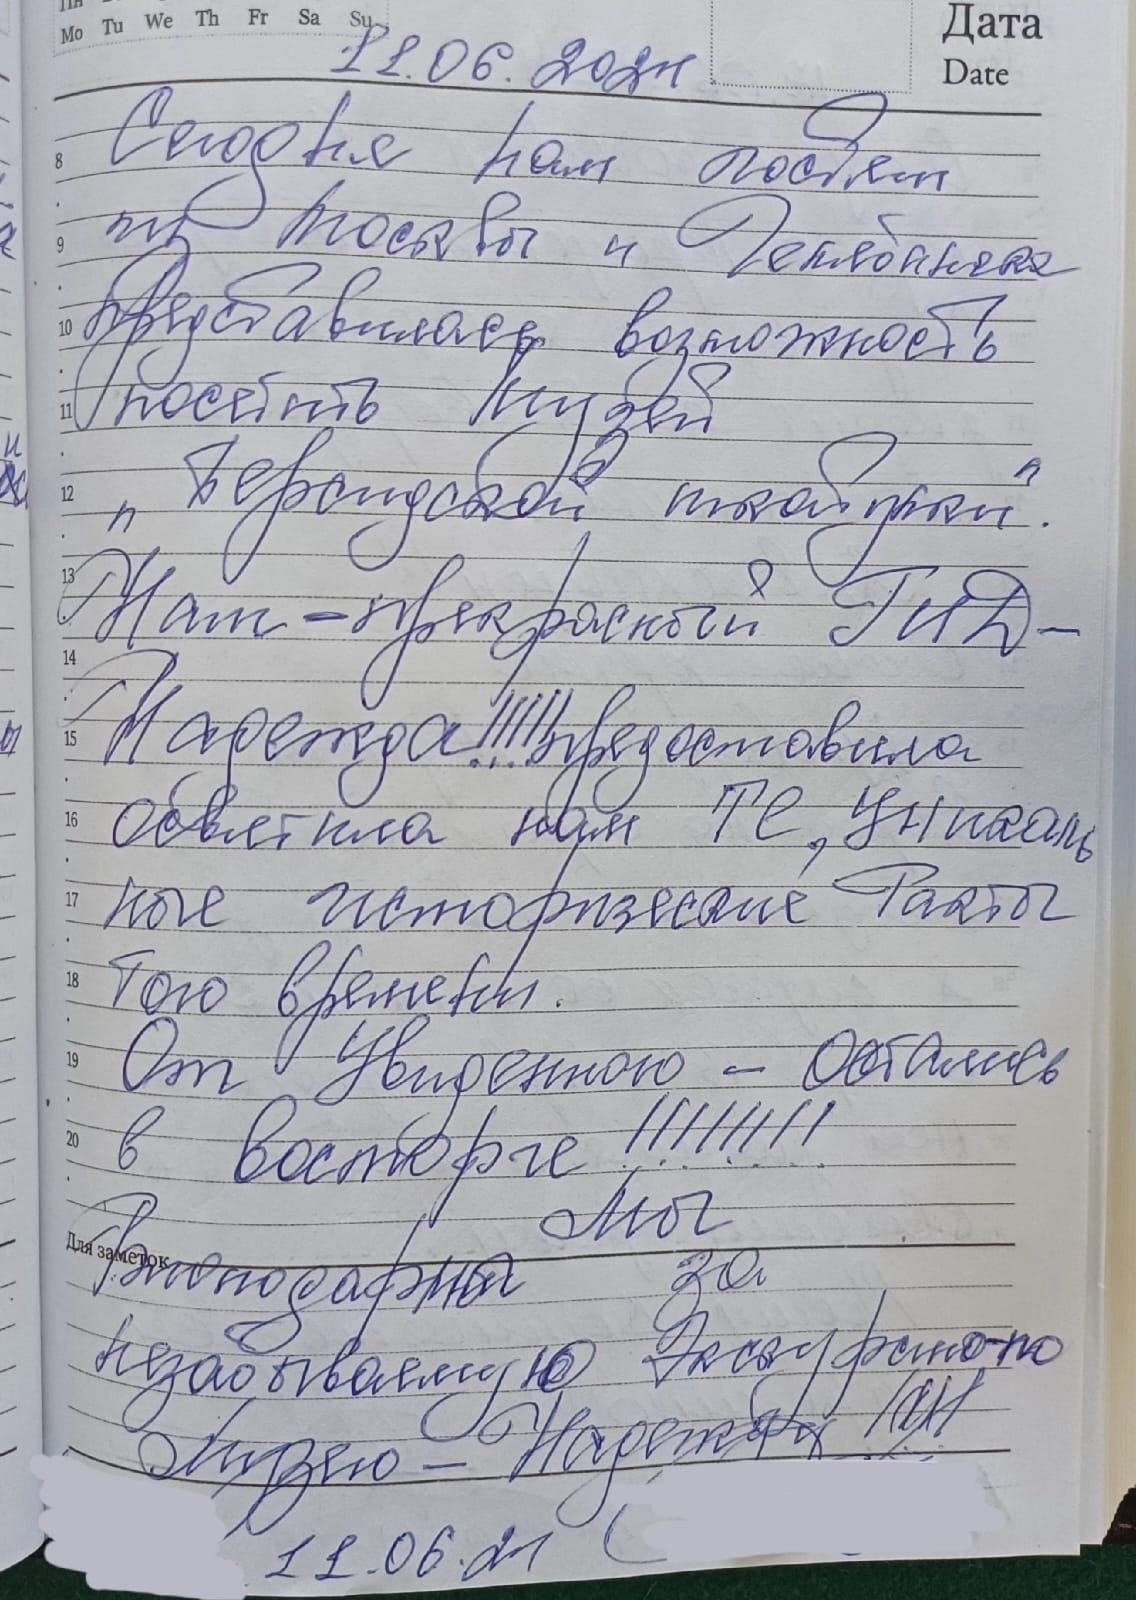 Mo Tu We Th Fr Sa Su
Дата
Date
11.06.2024
8 Сегодня нам гостям
9 из Москвы и Челябинска
10 представилась возможность
11 посетить музей
12 "Персидской шкатулки".
13 Наш - прекрасный ГИД -
14
15 Надежда!!!!! предоставила
16 осветила нам ТЕ, Уникаль
17 ные исторические Факты
18 Того времени.
19 От Увиденного - Остались
20 в восторге !!!!!!!!
Мы
Для заметок
Благодарны за
незабываемую Экскурсию по
Музею - Надежду
11.06.24